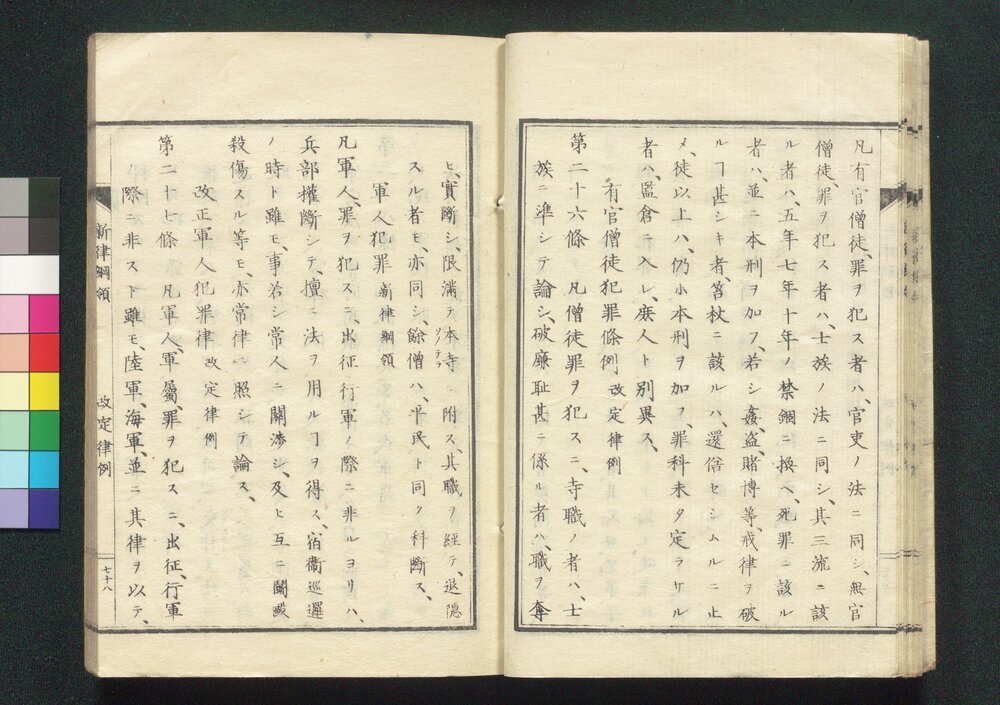 凡有官僧徒、罪ヲ犯ス者ハ、官吏ノ法ニ同シ、無官
僧徒、罪ヲ犯ス者ハ、士族ノ法ニ同シ、其三流ニ該
ル者ハ、五年七年十年ノ禁錮ニ換ヘ、死罪ニ該ル
者ハ、並ニ本刑ヲ加フ、若シ姦、盗、賭博等、戒律ヲ破
ルヿ甚シキ者、笞杖ニ該ルハ、還俗セシムルニ止
メ、徒以上ハ、仍ホ本刑ヲ加フ、罪科未タ定ラサル
者ハ、監倉ニ入レ、庶人ト別異ス、
有官僧徒犯罪條例 改定律例
第二十六條 凡僧徒罪ヲ犯スニ、寺職ノ者ハ、士
族ニ準シテ論シ、破廉耻甚ニ係ル者ハ、職ヲ奪
ヒ、實斷シ、限滿テ本寺ニ附ス、其職ヲ經テ、退隠
スル者モ、亦同シ、餘僧ハ、平民ト同ク科斷ス、
軍人犯罪 新律綱領
凡軍人、罪ヲ犯ス、出征行軍ノ際ニ非ルヨリハ、
兵部權斷シテ、擅ニ法ヲ用ルヿヲ得ス、宿衞巡邏
ノ時ト雖モ、事若シ常人ニ關渉シ、及ヒ互ニ鬪毆
殺傷スル等モ、亦常律ニ照シテ論ス、
改正軍人犯罪律 改定律例
第二十七條 凡軍人、軍屬、罪ヲ犯スニ、出征、行軍
ノ際ニ非スト雖モ、陸軍、海軍、並ニ其律ヲ以テ、
新律綱領 改定律例 七十八